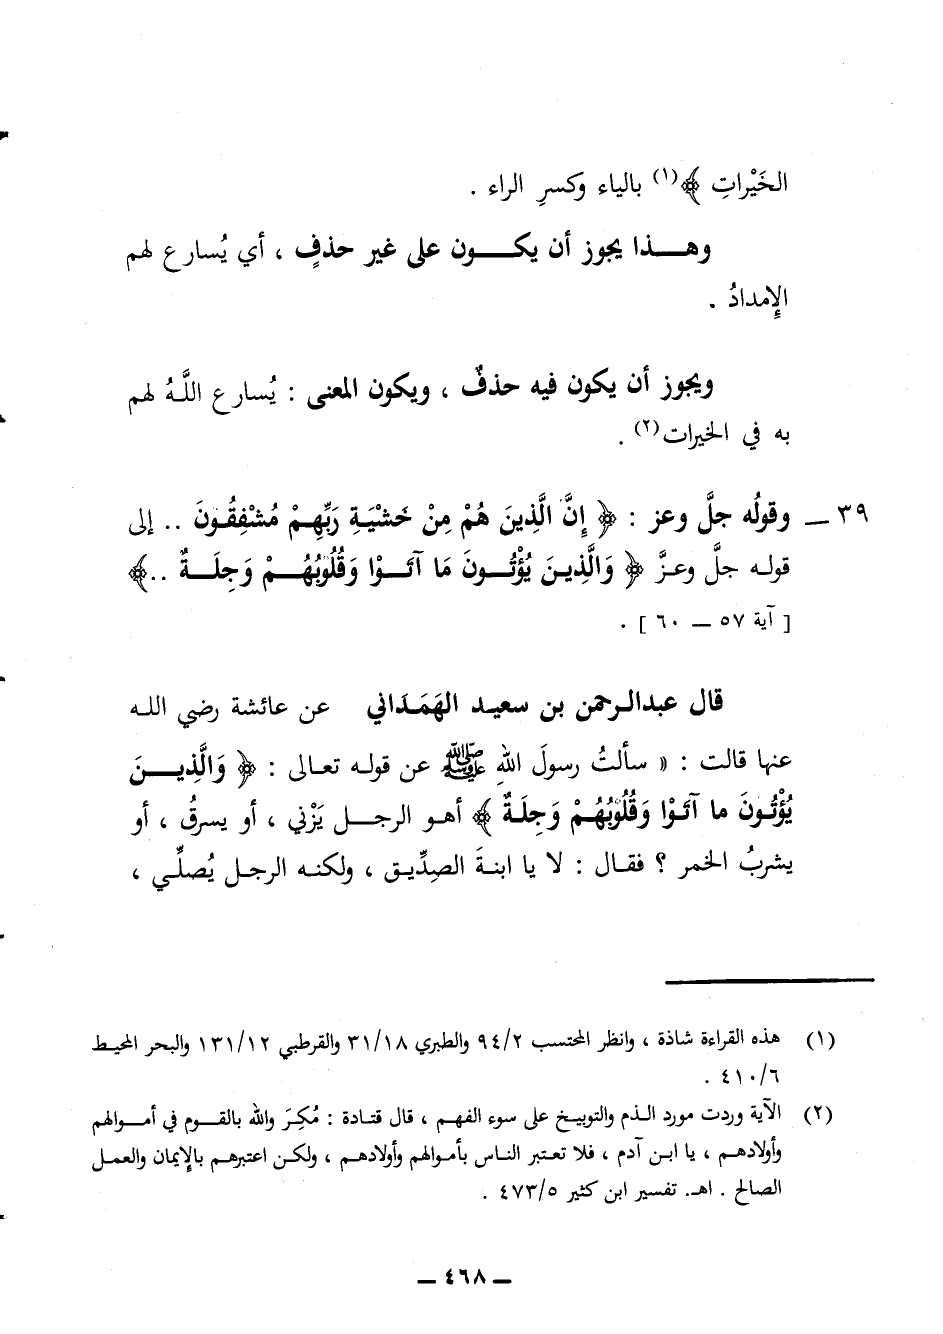 الخَيْراتِ ﴾(١) بالياء وكسرِ الراء .
وهـذا يجوز أن يكـون على غير حذفٍ ، أي يُسارع لهم
الإِمدادُ .
ويجوز أن يكون فيه حذفٌ ، ويكون المعنى : يُسارع اللَّهُ لهم
به في الخيرات(٢) .
٣٩ ـ وقولُه جلَّ وعز : ﴿ إِنَّ الَّذِينَ هُمْ مِنْ خَشْيَةِ رَبِّهِمْ مُشْفِقُونَ .. إلى
قوله جلَّ وعزَّ ﴿ وَالَّذِينَ يُؤْتُونَ مَا آتَوْا وَقُلُوبُهُمْ وَجِلَةٌ ..﴾
[ آية ٥٧ ـ ٦٠ ] .
قال عبدالرحمن بن سعيد الهَمَدَاني عن عائشة رضي الله
عنها قالت : « سألتُ رسولَ اللهِ ﷺ عن قوله تعالى : ﴿ وَالَّذِينَ
يُؤْتُونَ ما آتَوْا وَقُلُوبُهُمْ وَجِلَةٌ ﴾ أهو الرجل يَزْني ، أو يسرقُ ، أو
يشربُ الخمر ؟ فقال : لا يا ابنةَ الصِدِّيق ، ولكنه الرجل يُصلِّي ،
(١) هذه القراءة شاذة ، وانظر المحتسب ٩٤/٢ والطبري ٣١/١٨ والقرطبي ١٣١/١٢ والبحر المحيط
٤١٠/٦ .
(٢) الآية وردت مورد الذم والتوبيخ على سوء الفهم ، قال قتادة : مُكِرَ والله بالقوم في أموالهم
وأولادهم ، يا ابن آدم ، فلا تعتبر الناس بأموالهم وأولادهم ، ولكن اعتبرهم بالإيمان والعمل
الصالح . اهـ. تفسير ابن كثير ٤٧٣/٥ .
ـ ٤٦٨ ـ